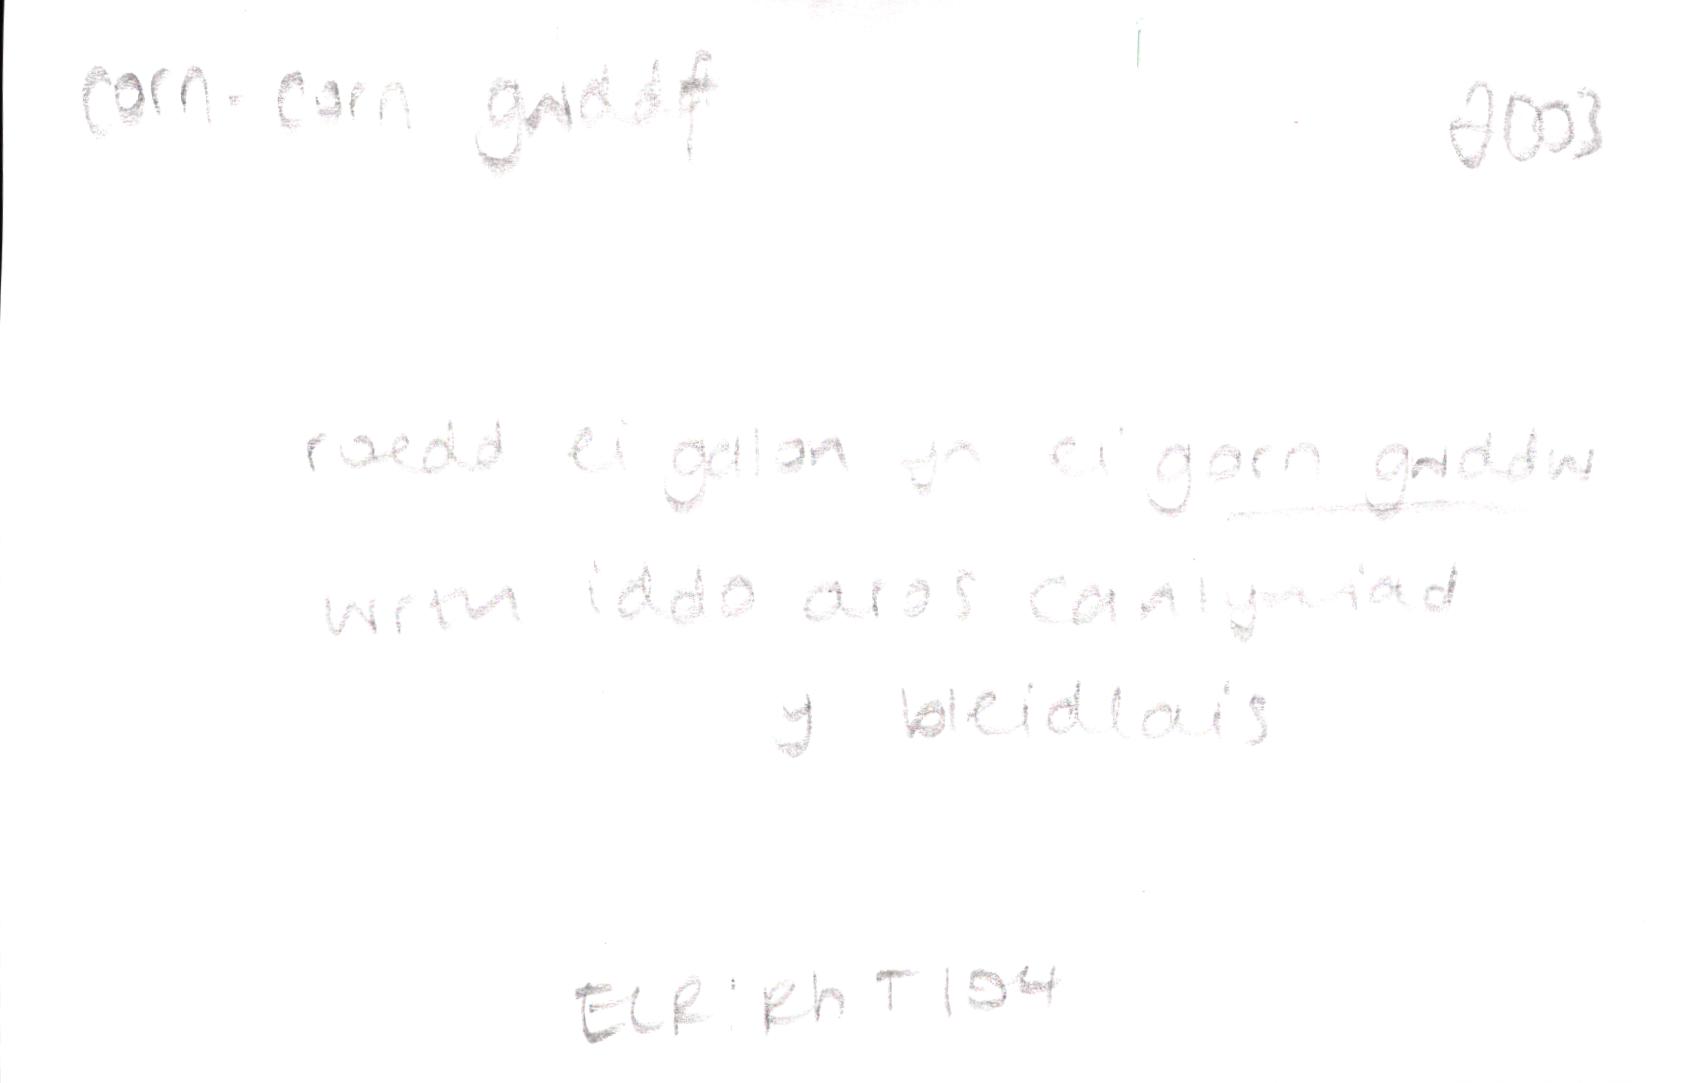 corn-corn gwddf 2003
roedd ei galon yn ei gorn gwddw
wrth iddo aros canlyniad
y bleidlais
ELR: RhT 194